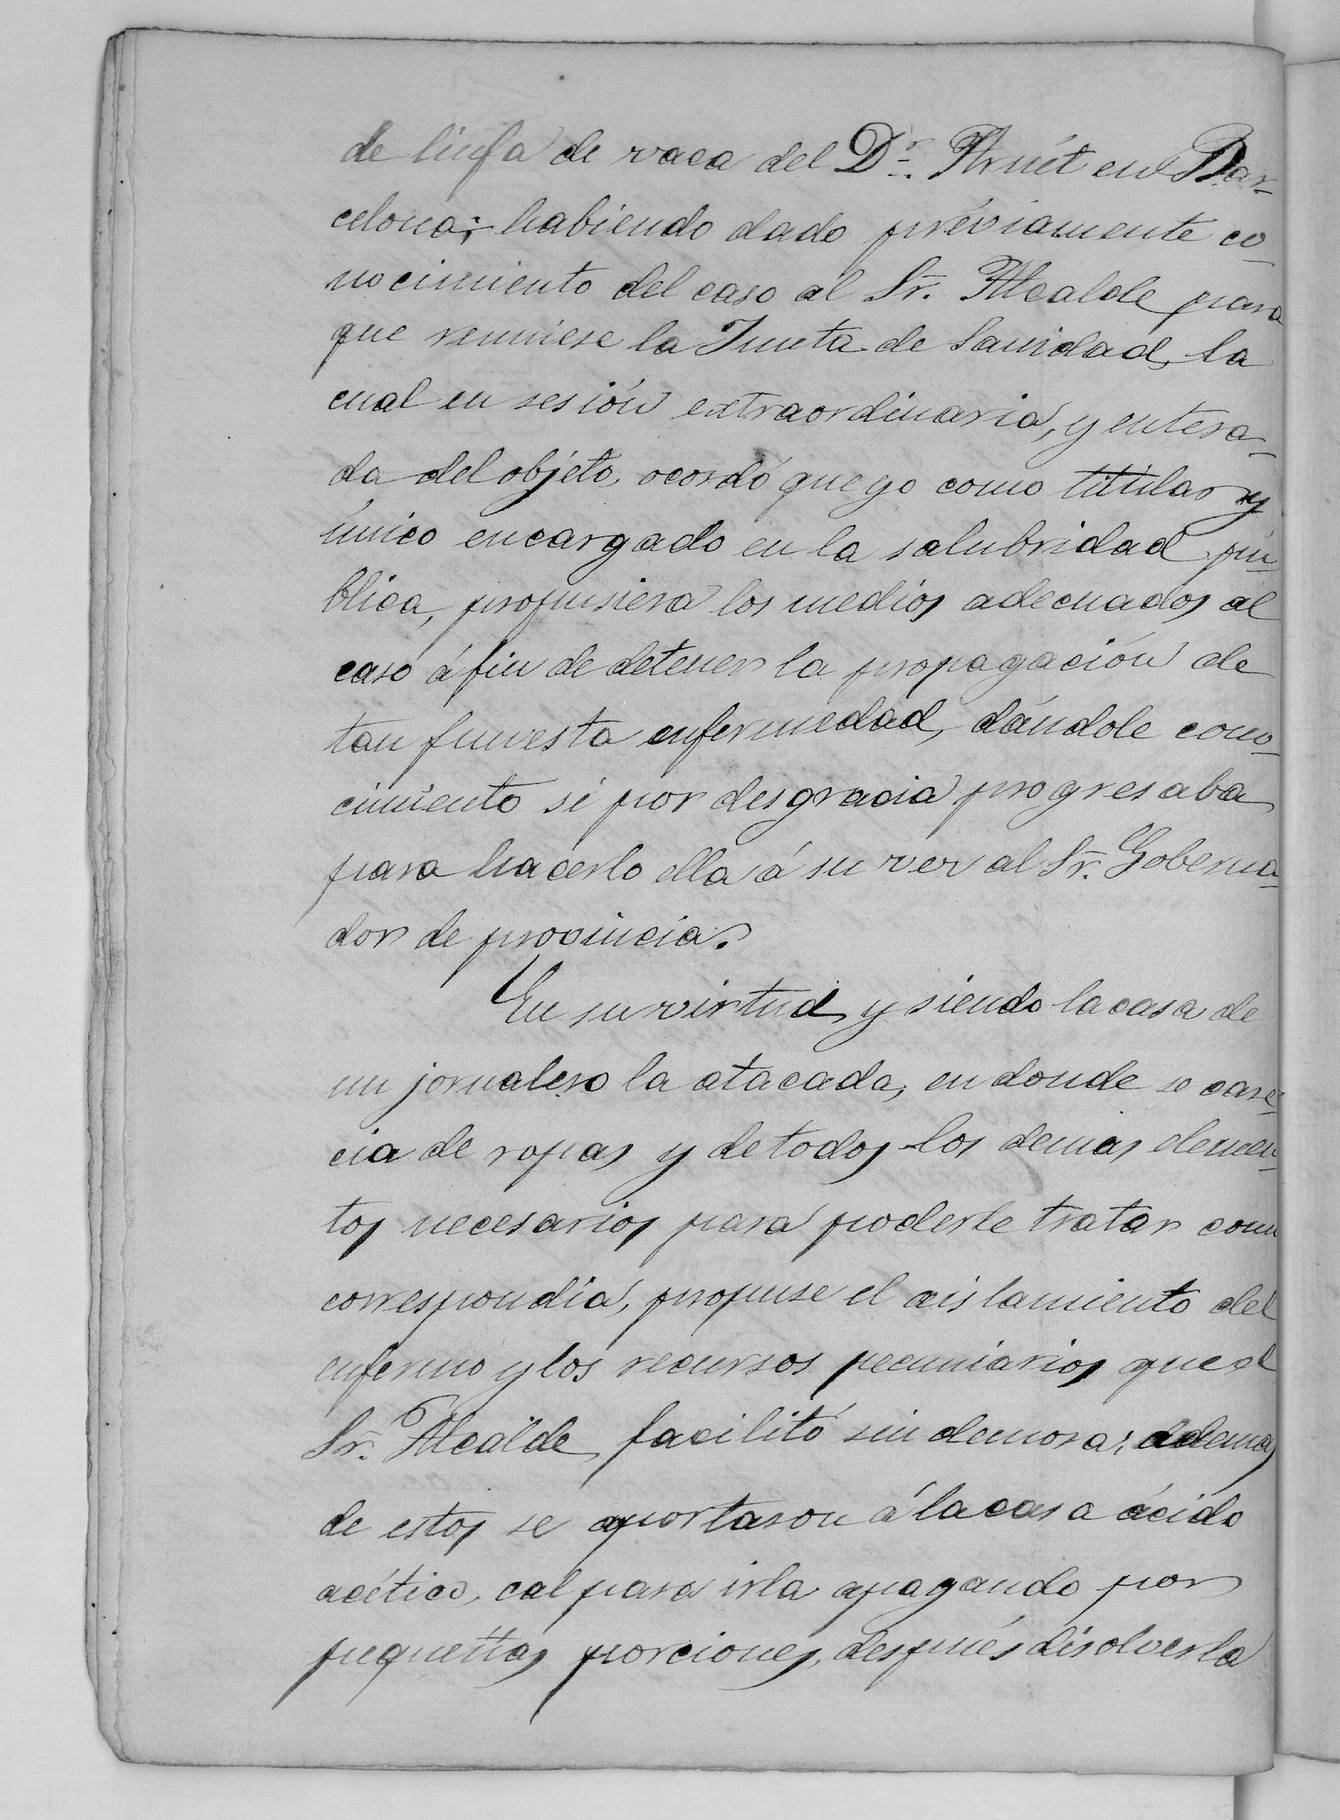 de linfa de vaca del Dr. Pruét en Bar-
celona; habiendo dado préviamente co-
nocimiento del caso al Sr. Alcalde para
que reuniese la Junta de Sanidad, la
cual en sesión extraordinaria, y entera-
da del objéto, acordó que yo como titular y
único encargado en la salubridad pú-
blica, propusiera los medios adecuados al
caso á fin de detener la propagación de
tan funesta enfermedad, dándole cono-
cimiento si por desgracia progresaba
para hacerlo ella á su vez al Sr. Goberna-
dor de provincia.
En su virtud, y siendo la casa de
un jornalero la atacada, en donde se care-
cia de ropas y de todos los demas elemen-
tos necesarios para poderle tratar como
correspondia, propuse el aislamiento del
enfermo y los recursos pecuniarios que el
Sr. Alcalde facilitó sin demora; ademas
de estos se aportaron á la casa ácido
acético, cal para irla apagando por
pequeñas porciones, después disolverla